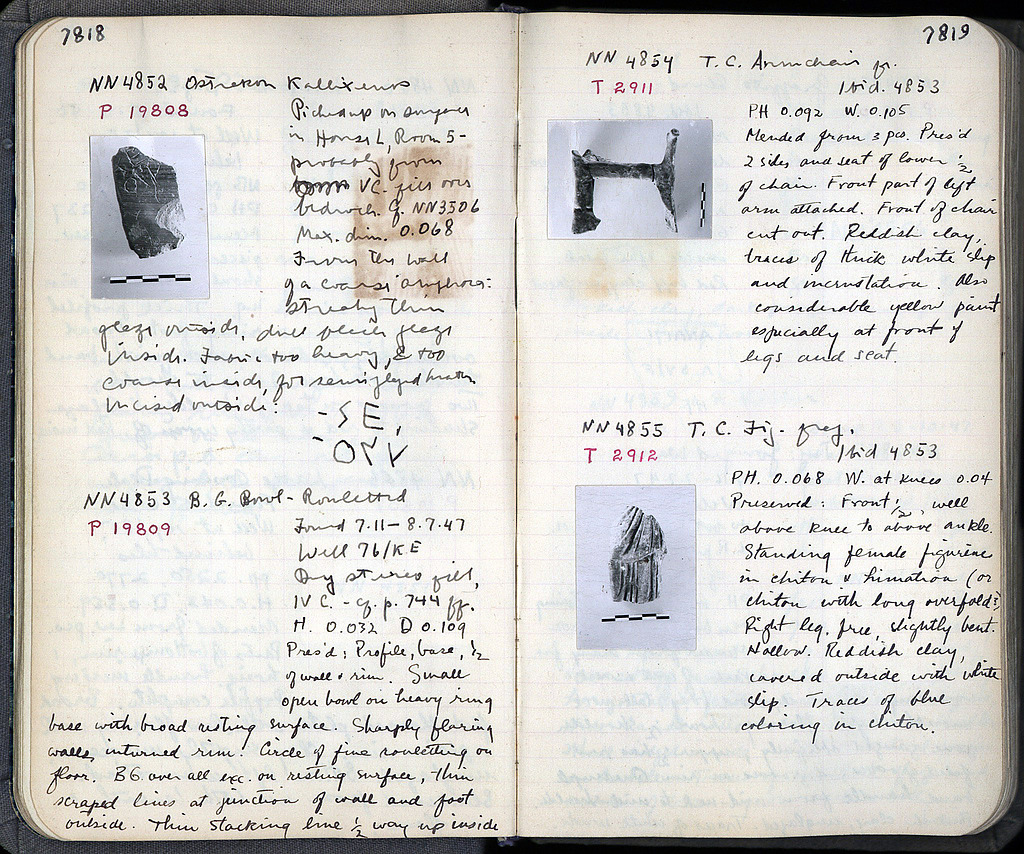 7818
NN 4852 Ostrakon Kallixenos
P 19808
Picked up on surface
in House L, Room 5 -
probably from
VC. fill over
bedrock. Cf. NN 3506
Max. dim. 0.068
From the wall
of a coarse amphora:
streaky thin
glaze outside, dull black glaze
inside. Fabric too heavy, & too
coarse inside, for semi-glazed krater
Incised outside:
- S E,
- ONV
NN 4853 B.G. Bowl - Rouletted
P 19809
Found 7.11 – 8.7.47
Well 76/K.E
Dry stereo fill,
IV C. - cf. p. 744 ff.
H. 0.032 D 0.109
Pres'd: Profile, base, ½
of wall & rim. Small
open bowl on heavy ring
base with broad resting surface. Sharply flaring
walls, inturned rim. Circle of fine rouletting on
floor. BG. over all exc. on resting surface, thin
scraped lines at junction of wall and foot
outside. Thin stacking line ½ way up inside
7819
NN 4854 T.C. Armchair fr.
T 2911
Ibid. 4853
PH 0.092 W. 0.105
Mended from 3 pcs. Pres'd
2 sides and seat of lower ½
of chair. Front part of left
arm attached. Front of chair
cut out. Reddish clay,
traces of thick white slip
and incrustation. Also
considerable yellow paint
especially at front of
legs and seat.
NN 4855 T.C. Fig. frag.
T 2912
Ibid 4853
PH. 0.068 W. at knees 0.04
Preserved: Front ½, well
above knee to above ankle.
Standing female figurine
in chiton & himation (or
chiton with long overfold?)
Right leg free, slightly bent.
Hollow. Reddish clay,
covered outside with white
slip. Traces of blue
coloring on chiton.